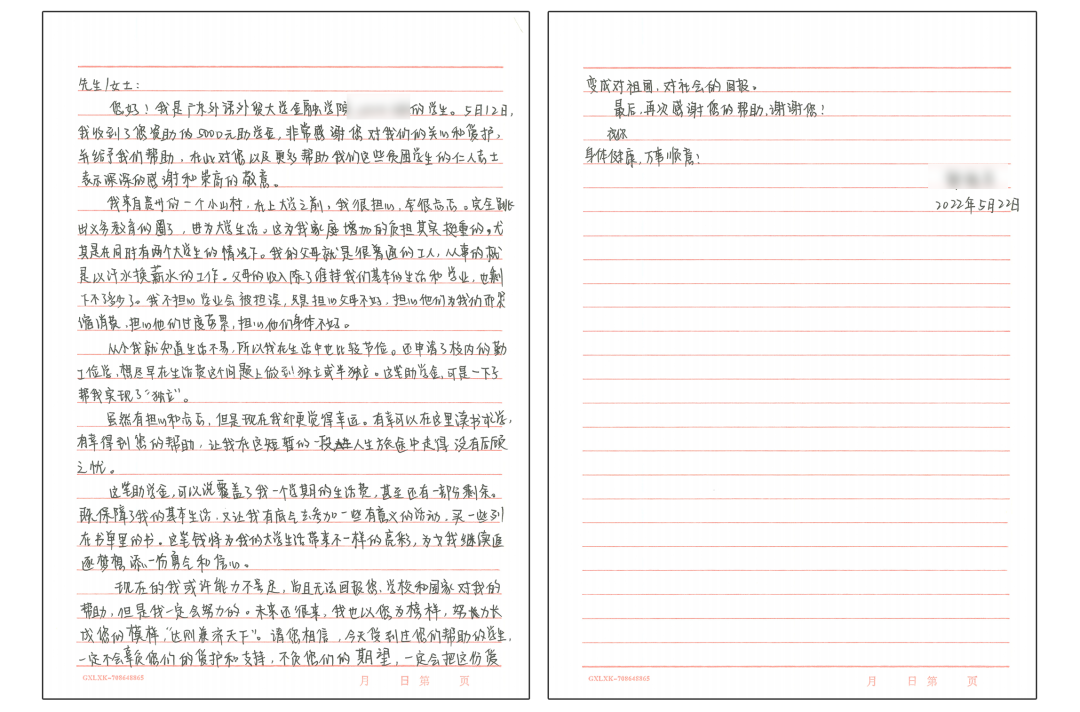 先生/女士：
您好！我是广东外语外贸大学金融学院的学生。5月12日，
我收到了您资助的5000元助学金，非常感谢您对我们的关心和爱护，
并给予我们帮助，在此对您以及更多帮助我们这些贫困学生的仁人志士
表示深深的感谢和崇高的敬意。
我来自贵州的一个小山村，在上大学之前，我很担心，会很忐忑。完全跳
出义务教育的圈子，进入大学生活。这为我家庭增加的负担其实挺重的。尤
其是在同时有两个大学生的情况下。我的父母就是很普通的工人，从事的就
是以汗水换薪水的工作。父母的收入除了维持我们基本的生活和学业，也剩
下不了多少了。我不担心学业会被担误，只是担心父母不好，担心他们为我们而紧
缩消费，担心他们过度劳累，担心他们身体不好。
从小我就知道生活不易，所以我在生活中也比较节俭。还申请了校内的勤
工俭学，想尽早在生活费这个问题上做到独立或半独立。这笔助学金，可是一下子
帮我实现了“独立”。
虽然有担心和忐忑，但是现在我却更觉得幸运。有幸可以在这里读书求学，
有幸得到您的帮助，让我在这短暂的一段人生旅途中走得没有后顾
之忧。
这笔助学金，可以说覆盖了我一个学期的生活费，甚至还有一部分剩余。
既保障了我的基本生活，又让我有底气去参加一些有意义的活动，买一些列
在书单里的书。这笔钱将为我的大学生活带来不一样的亮彩，为我继续追
逐梦想添一份勇气和信心。
现在的我或许能力不足，尚且无法回报您、学校和国家对我的
帮助，但是我一定会努力的。未来还很来，我也以您为榜样，努力长
成您的模样，“达则兼济天下”。请您相信，今天受到过您们帮助的学生，
一定不会辜负您们的爱护和支持，不负您们的期望，一定会把这份爱
GXLXK-708648865
月 日 第 页
变成对祖国，对社会的回报。
最后，再次感谢您的帮助，谢谢您！
祝您
身体健康，万事顺意！
2022年5月22日
GXLXK-708648865
月 日 第 页